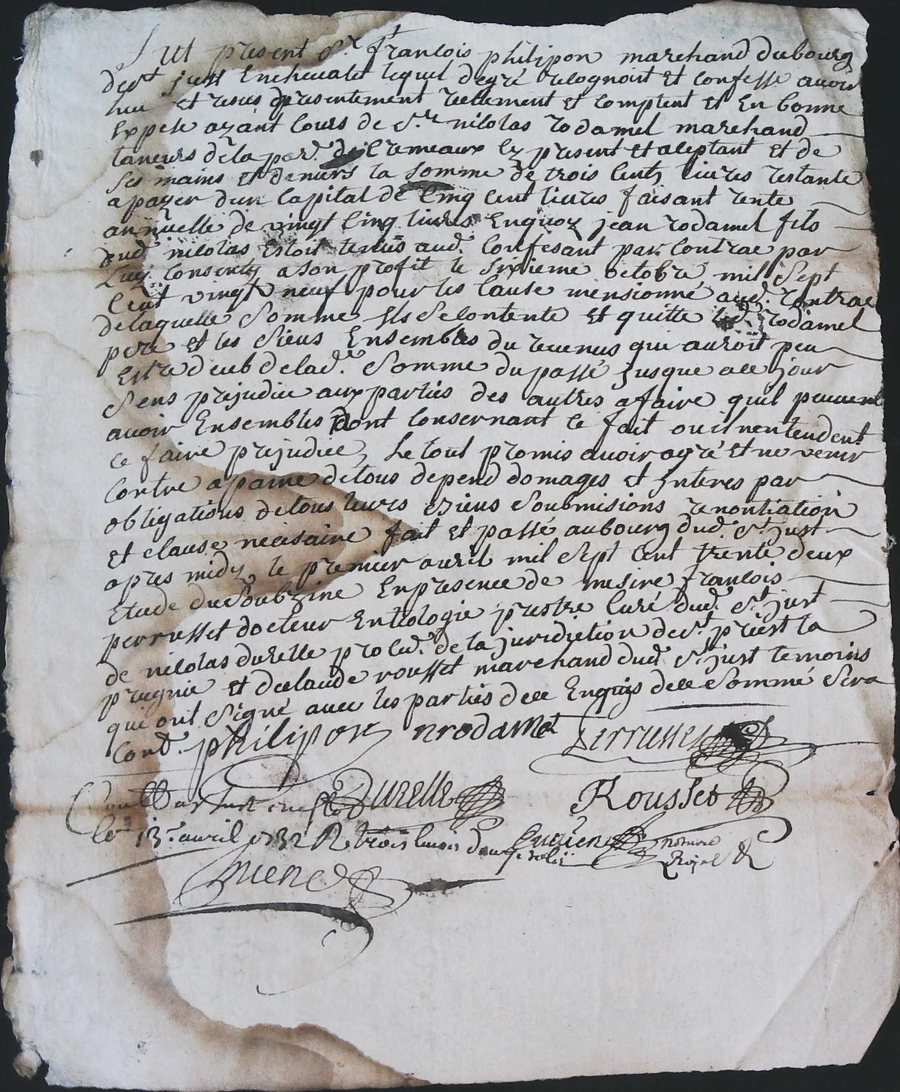 fut present Sr. françois philipon marchand du bourg
de st. just En chevalet lequel de gré recognoit et confesse avoir
heu et resus presentement reellement et comptent et En bonne
Expese ayant cours de Sr. nicolas rodamel marchand
taneurs de la par. de Cremeaux Cy present et aceptant et de
Ses mains et deniers la somme de trois Cents livres restante
a payer d'un Capital de Cinq Cent livres faisant rente
annuelle de vingt Cinq livres En quoy jean rodamel fils
dud. nicolas Estoit tenus aud. Confesant par Contrac par
Luy Consenty a son profit le sixieme octobre mil Sept
Cent vingt neuf pour les Cause mensionné aud. Contrac
de laquelle Somme Ils Se Contente et quitte led. rodamel
pere et les Siens Ensembles du revenus qui auroit peu
Estre deub de lad. Somme du passé jusque a ce jour
Sens prejudice aux partiés des autres afaire quil peuvent
avoir Ensembles dont Consernant le fait ou il nentendent
ce faire prejudice, Le tout promis avoir agré et ne venir
Contre a paine de tous depend domages et Interes par
obligations de tous leurs biens Soubmisions renontiation
et clauses necisaire fait et passé au bourg dud. st. just
apres midy le premier avril mil Sept Cent trente deux
Etude du Soubsine En presence de mesire françois
perrusset docteur En teologie prestre Curé dud. st. just
de nicolas durelle procu. de la juridiction de st. priest la
prugnie et de claude rousset marchand dud. st. just temoins
qui ont Signé avec les parties de ce Enquis de ce Somme Sera
Cont.
philipon nrodamel Perrusset
Durelle Rousset
Coullé a st just en chlet
le 13e. avril 1732 R trois livres
notaire
Royal